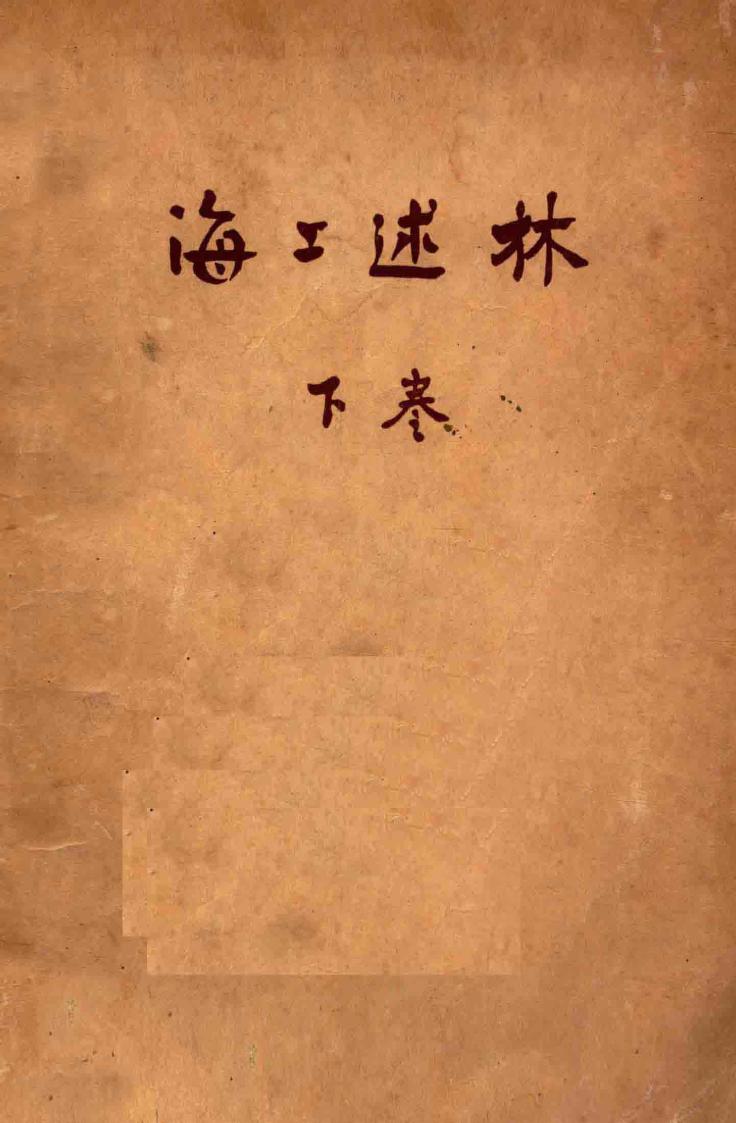 海上述林
下卷